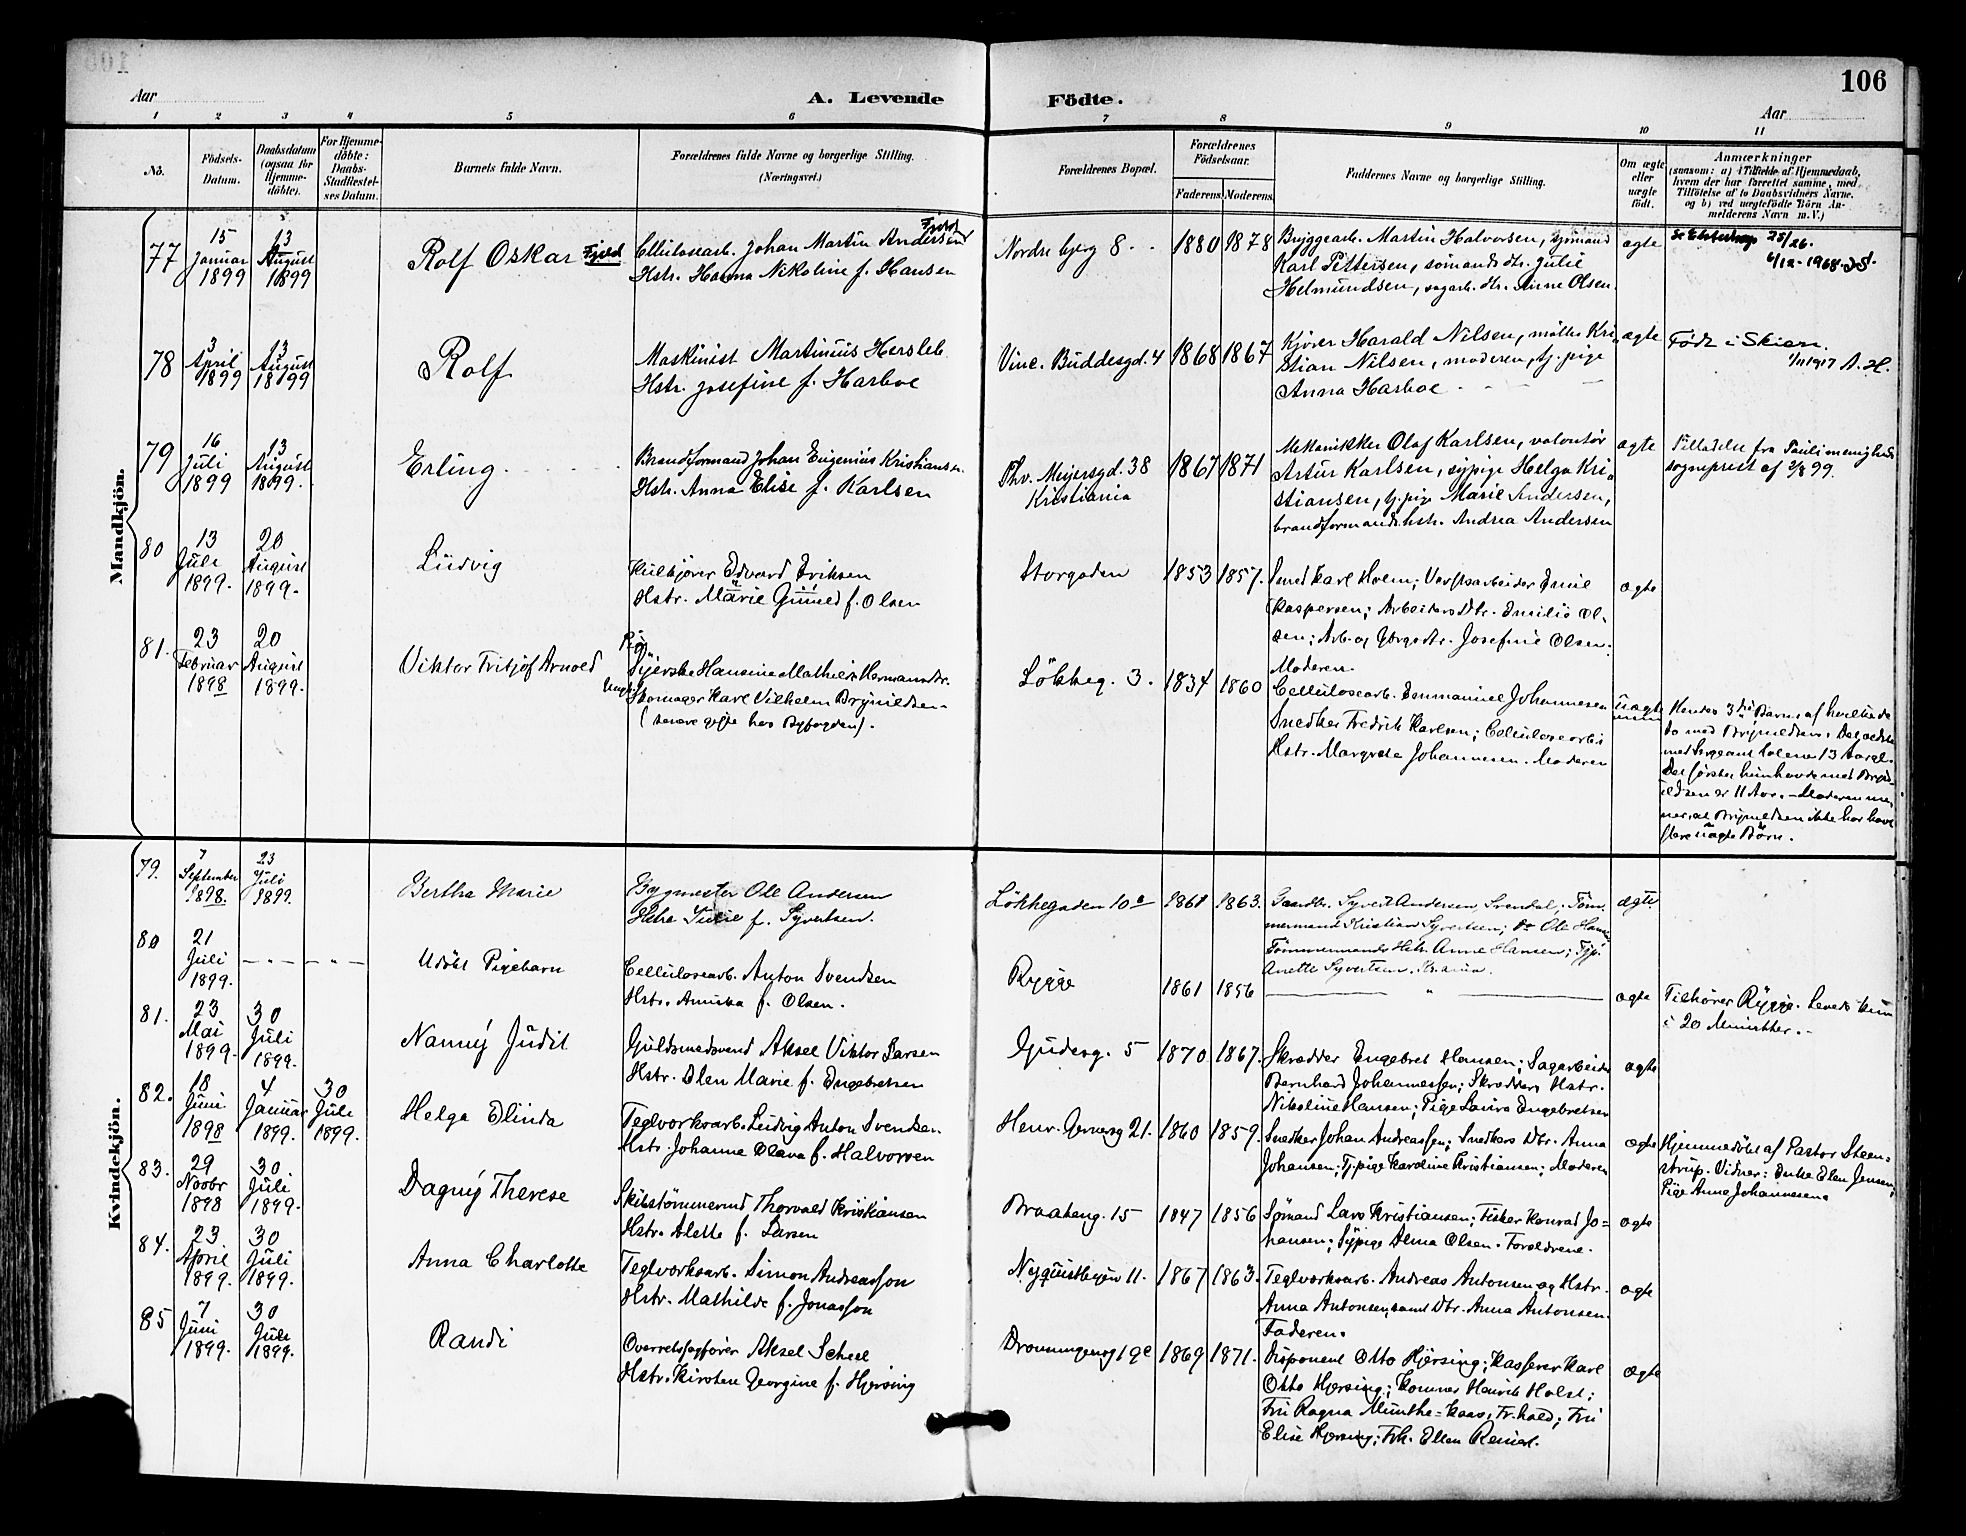 106
Aar
A. Levende
Födte.
Aar
1 2 3 4 5 6 7 8 9 10 11
No.
Födsels-
Datum.
Daabsdatum
(ogsaa for
Hjemme-
döbte).
For Hjemme-
döbte:
Daabs-
Stadfæstel-
ses Datum.
Barnets fulde Navn.
Forældrenes fulde Navne og borgerlige Stilling.
(Næringsvei.)
Forældrenes Bopæl.
Forældrenes
Födselsaar.
Faderens. Moderens.
Faddernes Navne og borgerlige Stilling.
Om ægte
eller
uægte
födt.
Anmærkninger
(saasom: a) i Tilfælde af Hjemmedaab,
hvem der har forrettet samme, med
Tilföielse af to Daabsvidners Navne,
og b) ved uægtefödte Börn An-
melderens Navn m. V.)
Mandkjön.
77
15
Januar
1899
13
August
1899
Rolf Oskar Fjeld
Fjeld
Cellulosearb. Johan Martin Andersen
Hstr. Hanna Nikoline f. Hansen
Nordre bjerg 8
1880 1878
Bryggearb. Martin Halvorsen, sjømand
Karl Pettersen, sømands dtr. Julie
Helmundsen, sagarb. Hr. Anne Olsen.
ægte
25/26.
6/12-1968.
78
3
April
1899
13
August
1899
Rolf
Maskinist Martinius Hersleb
Hstr. Josefine f. Harboe
Vinc. Buddesgd. 4
1868 1867
Kjører Harald Nilsen, møller Kri-
stian Nilsen, moderen, tj. pige
Anna Harboe
ægte
Født i Skien.
1/11 1917 A. H.
79
16
Juli
1899
13
August
1899.
Erling
Brandformand Johan Eugenius Kristiansen
Hstr. Anna Elise f. Karlsen
Thv. Meyersgd. 38
Kristiania
1867 1871
Mekanikker Olaf Karlsen, volontør
Artur Karlsen, sypige Helga Kri-
stiansen, tj. pige Marie Andersen,
brandformands hstr. Andrea Andersen
ægte
Tilladelse fra Paulimenigheds
sogneprest af 2/8 99.
80
13
Juli
1899.
20
August
1899.
Ludvig
Kulkjører Edvard Eriksen
Hstr. Marie Gunild f. Olsen
Storgaden
1853 1857.
Smed Karl Holm; Verftsarbeider Emil
Kaspersen; Arbeiders Dtr. Emilie Ol-
sen; Arb. og Josefine Olsen.
Moderen.
ægte
81.
23
Februar
1898
20
August
1899.
Viktor Fritjof Arnold
Pige
Syerske Hansine Mathilde Hermansdtr.
Ungk. Skomager Karl Vilhelm Brynildsen
(senere gifte hos Byfogden).
Løkkeg. 3.
1834 1860
Cellulosearb. Emmanuel Johannesen
Snedker Fredrik Karlsen; Cellulosearb.
Hstr. Margrete Johannesen. Moderen
uægte
Hendes 3die Barn, af hvilke de
to med Brynildsen. Det ældste
med Sergeant Holm er 13 Aar gl.
Det første hun havde med Bryn-
ildsen er 11 Aar. Moderen me-
ner, at Brynildsen ikke har havt
flere uægte Børn.
Kvindekjön.
79.
7
September
1898.
23
Juli
1899.
Bertha Marie
Bygmester Ole Andersen
Hstr. Julie f. Syvertsen.
Løkkegaden 10a
1861 1863.
Gaardbr. Syvert Andersen, Svendal; Tøm-
mermand Kristian Syvertsen; do Ole Hansen
Tømmermands Hstr. Anne Hansen; Tjp.
Anette Syvertsen, Kr.ania.
ægte
80
21
Juli
1899.
Udøbt Pigebarn
Cellulosearb. Anton Svendsen
Hstr. Annika f. Olsen.
Rygge
1861 1856
ægte
Tilhører Rygge. Levede kun
i 20 Minutter.
81.
23
Mai
1899.
30
Juli
1899.
Nanny Judit
Guldsmedsvend Aksel Viktor Larsen
Hstr. Elen Marie f. Engebretsen
Gudesg. 5
1870 1867.
Skrædder Engebret Hansen; Sagarbeider
Bernhard Johannessen; Skrædders Hstr.
Nikoline Hansen; Pige Laura Engebretsen
ægte
82.
18
Juni
1898
4
Januar
1899.
30
Juli
1899.
Helga Elinda
Teglverksarb. Ludvig Anton Svendsen
Hstr. Johanne Olava f. Halvorsen
Henr. Gernersg 21.
1860 1859.
Snedker Johan Andreassen; Snedkers Dtr. Anna
Johansen; Tj. pige Karoline Kristiansen; Moderen
ægte
Hjemmedøbt af Pastor Steen-
strup. Vidner: Enke Elen Jensen,
Pige Anna Johannesen.
83.
29
Novbr
1898
30.
Juli
1899.
Dagny Therese
Skibstømmermd Thorvald Kristiansen
Hstr. Alette f. Larsen
Braateng. 15
1847 1856
Sømand Lars Kristiansen; Fisker Konrad Jo-
hansen; Sypige Alma Olsen. Forældrene.
ægte
84.
23
April
1899.
30
Juli
1899.
Anna Charlotte
Teglverksarb. Simon Andreasson
Hstr. Mathilde f. Jonasson
Nyquistbyen 11.
1867 1863.
Teglverksarb. Andreas Antonsen og Hstr.
Anna Antonsen, samt Dtr. Anna Antonsen.
Faderen.
ægte
85
7
Juni
1899.
30
Juli
1899.
Randi
Overretssagfører Aksel Scheel
Hstr. Kirsten Georgine f. Hjersing
Dronningensg 19c
1869 1871.
Disponent Otto Hjersing; Kasserer Karl
Otto Hjersing; Kommer Henrik Holst;
Fru Ragna Munthe-Kaas, Fr.hald; Fru
Elise Hjersing; Frk. Ellen
ægte